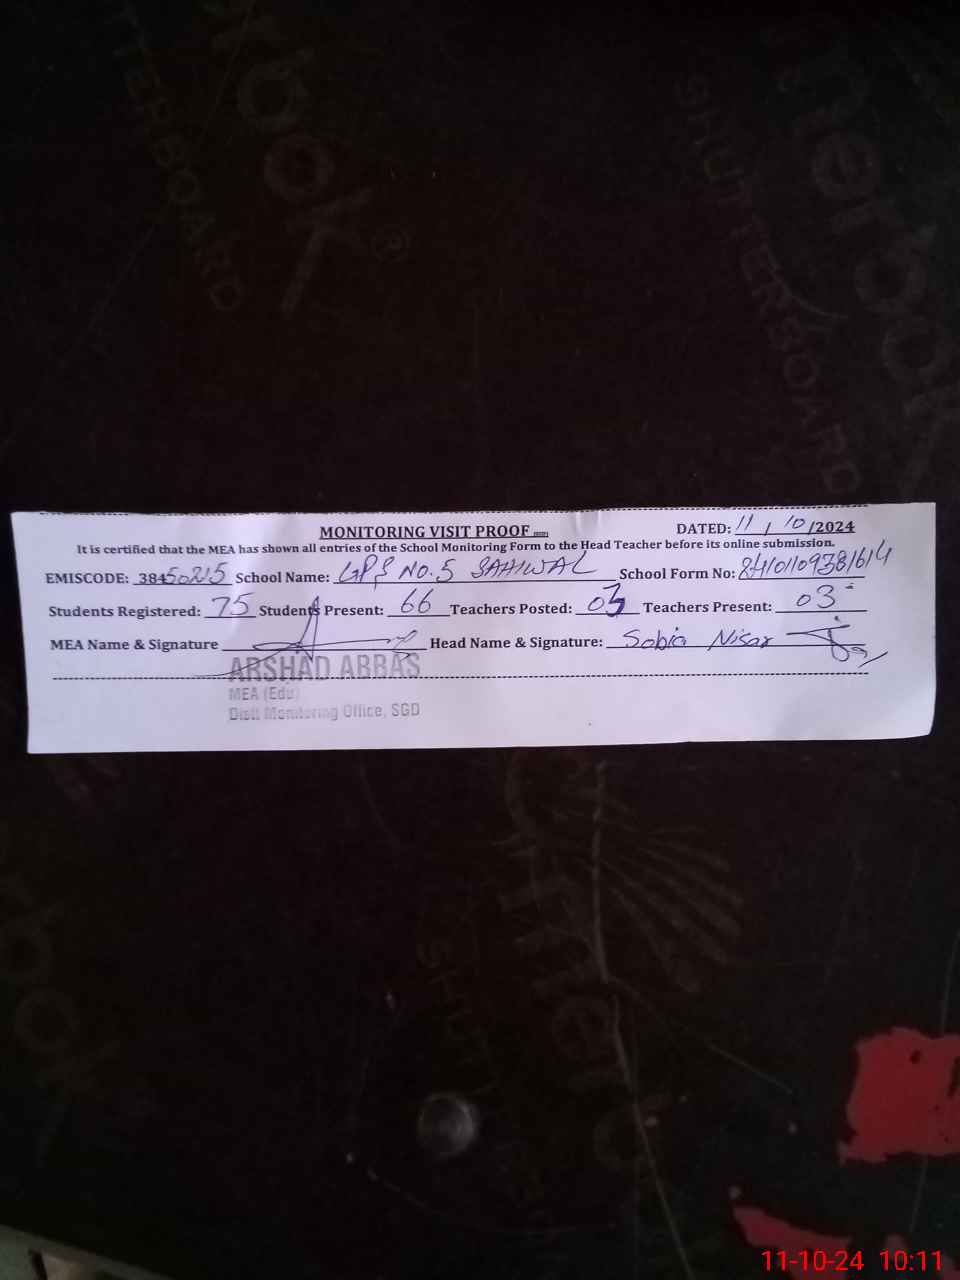 MONITORING VISIT PROOF
DATED: 11 / 10 /2024
It is certified that the MEA has shown all entries of the School Monitoring Form to the Head Teacher before its online submission.
EMISCODE: 38450215 School Name: GPS NO.5 SAHIWAL School Form No:
Students Registered: 75 Students Present: 66 Teachers Posted: 03 Teachers Present: 03
MEA Name & Signature Head Name & Signature: Sobia Nisar
ARSHAD ABBAS
MEA (Edu)
Distt Monitoring Office, SGD
SHUTTERBOARD
11-10-24 10:11